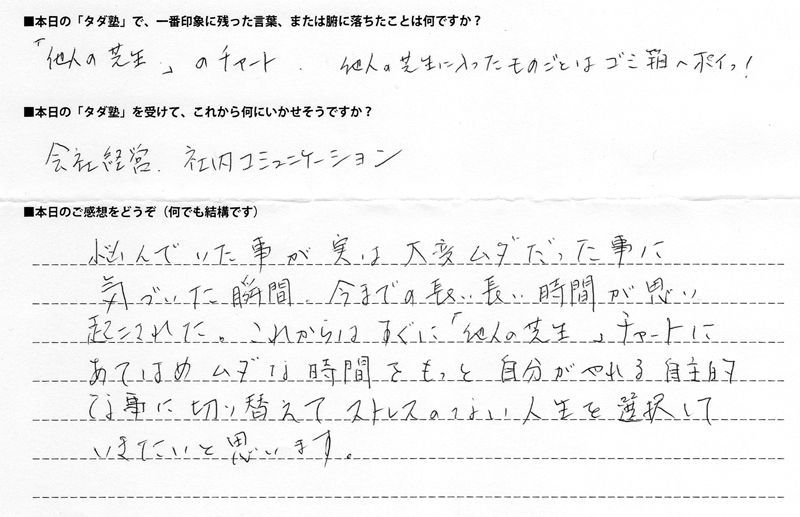 ■本日の「タダ塾」で、一番印象に残った言葉、または腑に落ちたことは何ですか?
「他人の芝生」のチャート. 他人の芝生に入ったものごとはゴミ箱へポイっ!
■本日の「タダ塾」を受けて、これから何にいかせそうですか?
会社経営. 社内コミュニケーション
■本日のご感想をどうぞ(何でも結構です)
悩んでいた事が実は大変ムダだった事に
気づいた瞬間、今までの長い長い時間が思い
起こされた。これからはすぐに「他人の芝生」チャートに
あてはめムダな時間をもっと自分がやれる自主的
な事に切り替えてストレスのない人生を選択して
いきたいと思います。